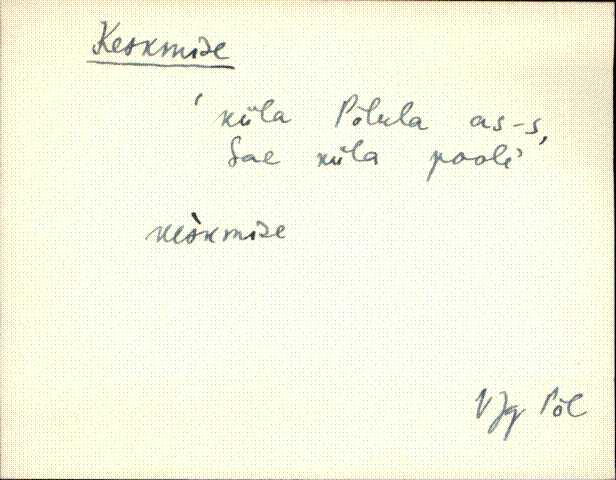 Keskmise
' küla Põlula as-s,
Sae küla pool'
keskmise
VJg Põl